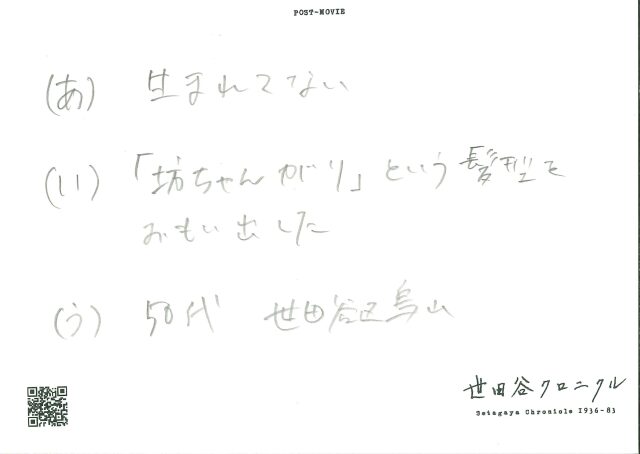 POST-MOVIE
(あ) 生まれてない
(い) 「坊ちゃんがり」という髪型を
おもい出した
(う) 50代 世田谷区烏山
世田谷クロニクル
Setagaya Chronicle 1936-83